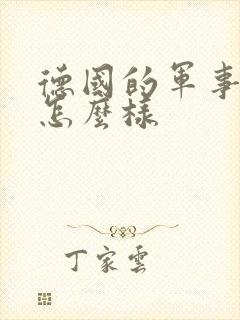 德國的軍事
怎麼樣
丁家雲